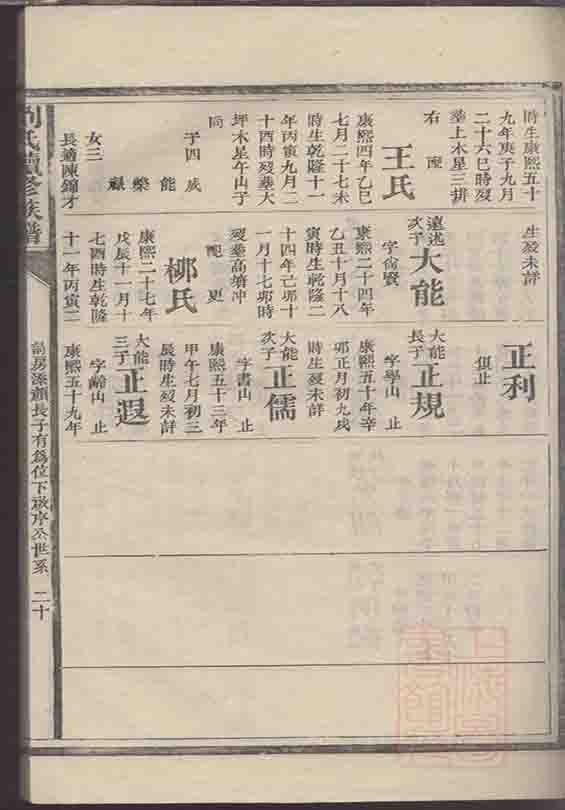 時生康熙五十
九年庚子九月
二十六巳時歿
塟上木星三拼
右配
王氏
康熙四年乙巳
七月二十七未
時生乾隆十一
年丙寅九月二
十酉時歿塟大
坪木星午山子
向
子四 咸
能
榮
顯
女三
長適陳錦才
生歿未詳
遠述
次子
大能
字尙賢
康熙二十四年
乙丑十月十八
寅時生乾隆二
十四年己卯十
一月十七卯時
歿塟高塘冲
配更
栁氏
康熙二十七年
戊辰十一月十
七酉時生乾隆
十一年丙寅二
正利
俱止
大能
長子
正規
字學山 止
康熙五十年辛
卯正月初九戌
時生歿未詳
大能
次子
正儒
字書山 止
康熙五十三年
甲午七月初三
辰時生歿未詳
大能
三子
正遐
字齡山 止
康熙五十九年
劉氏續修族譜
房添顏長子有爲位下啟序公世系 二十